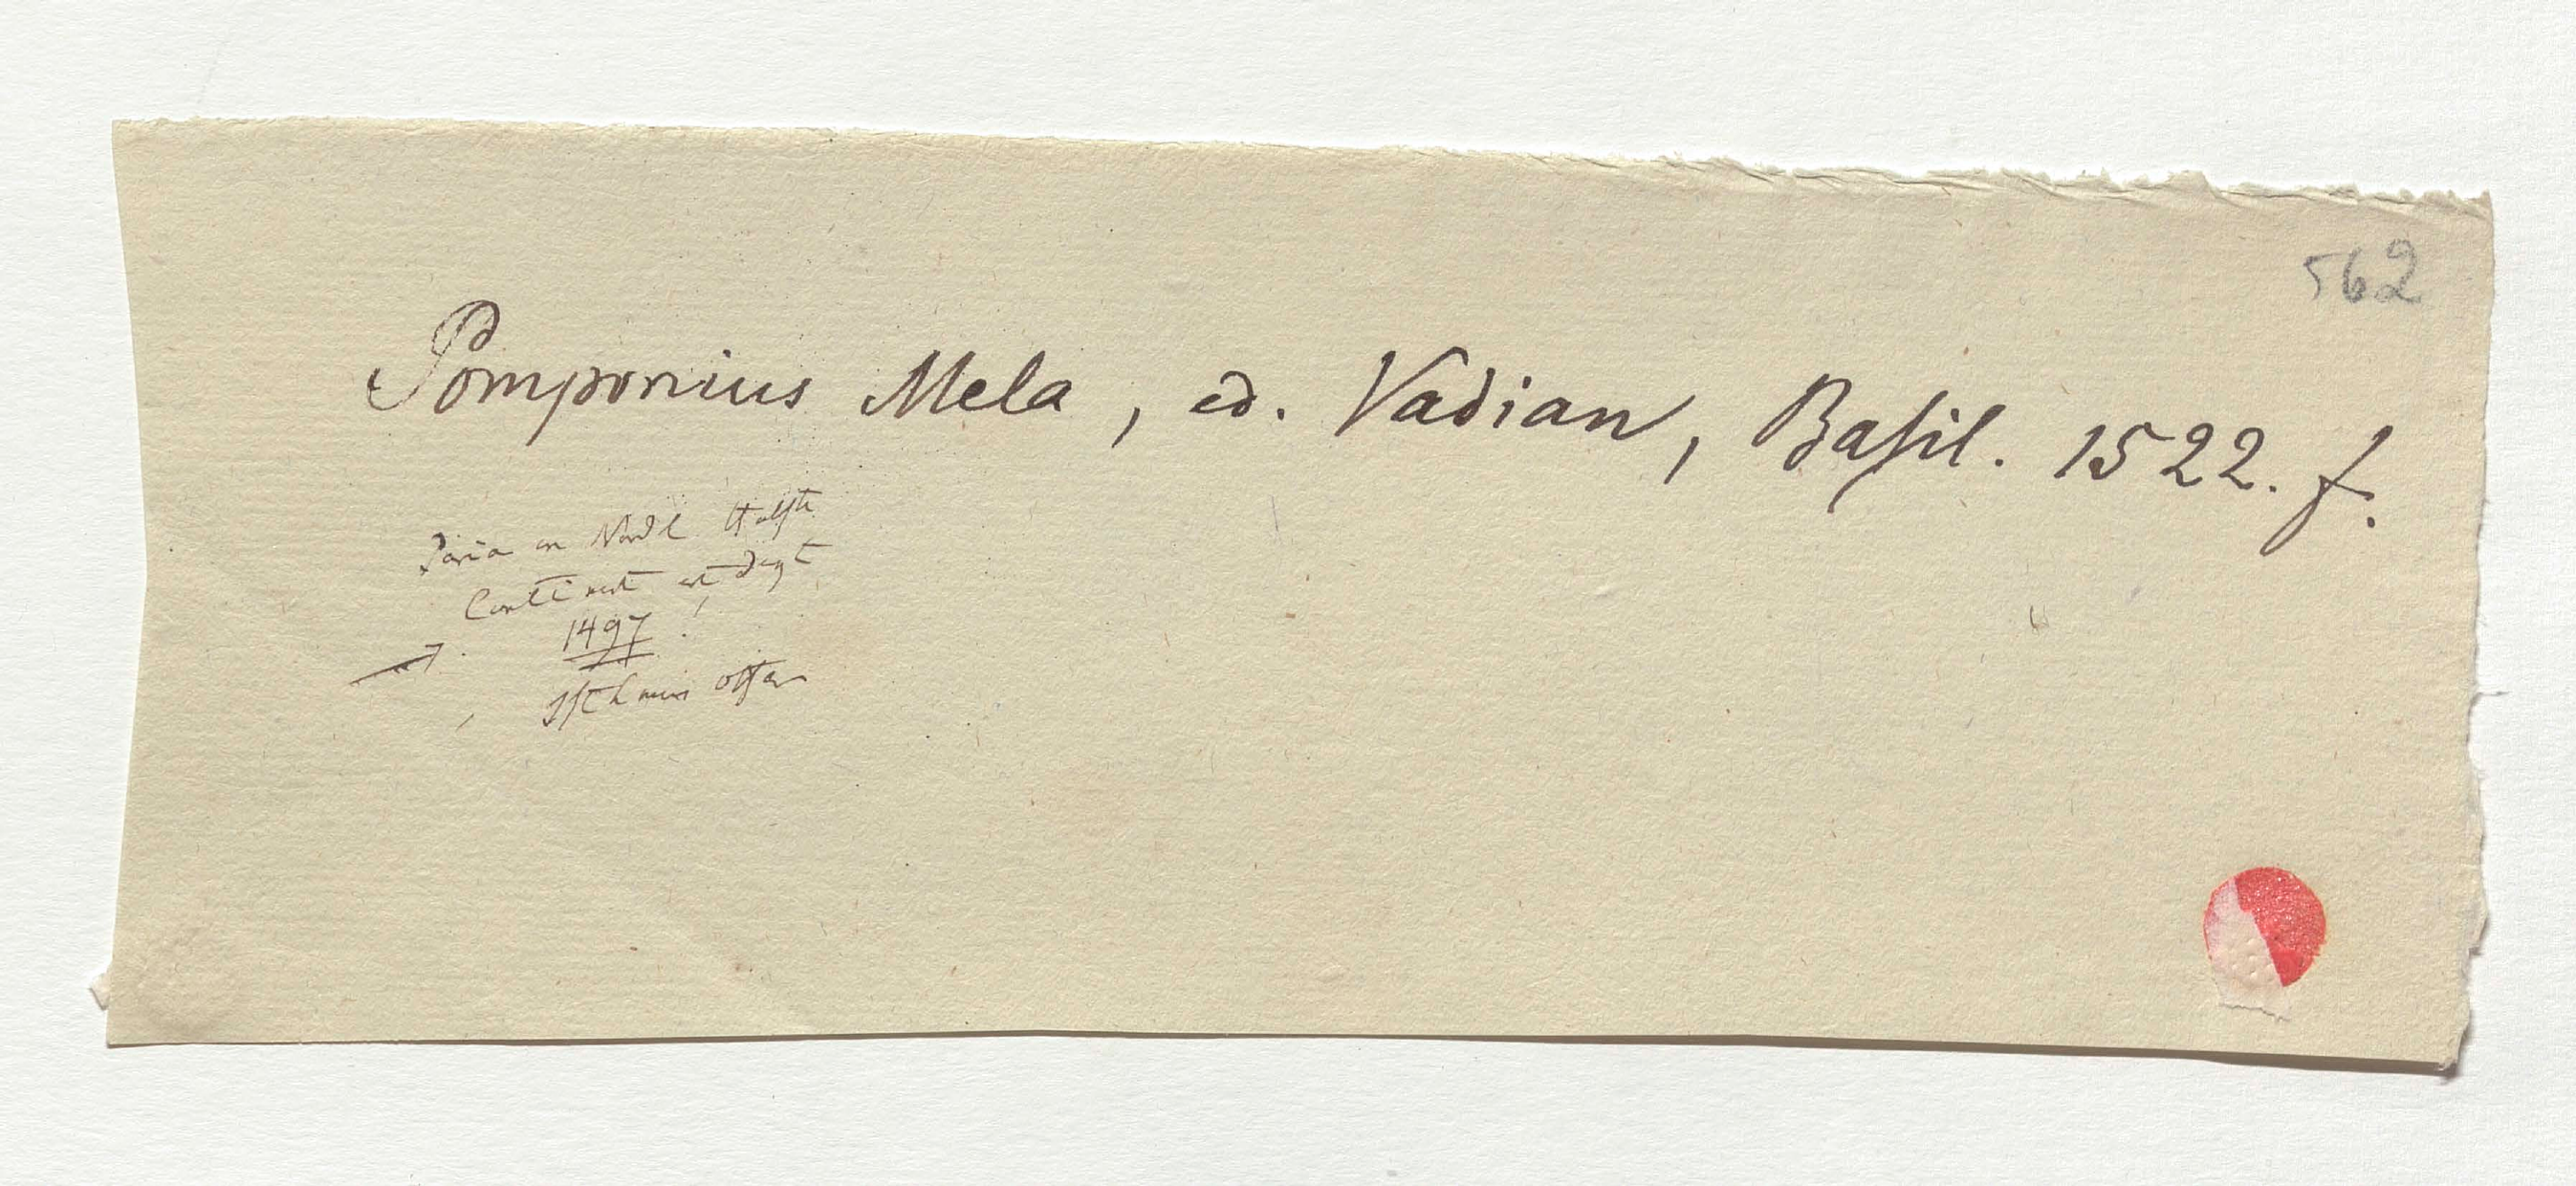 562
Pomponius Mela, ed. Vadian, Basil. 1522. f.
Paria in Nördl Hälfte
Continent entdegt
1497!
Isthmus offen